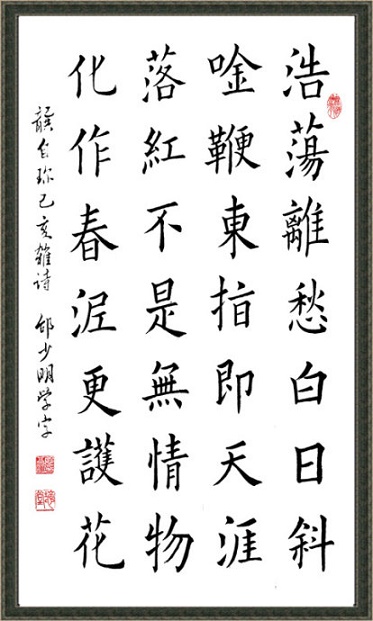 浩蕩離愁白日斜
唫鞭東指即天涯
落紅不是無情物
化作春泥更護花
龔自珍己亥雜诗 少明学字